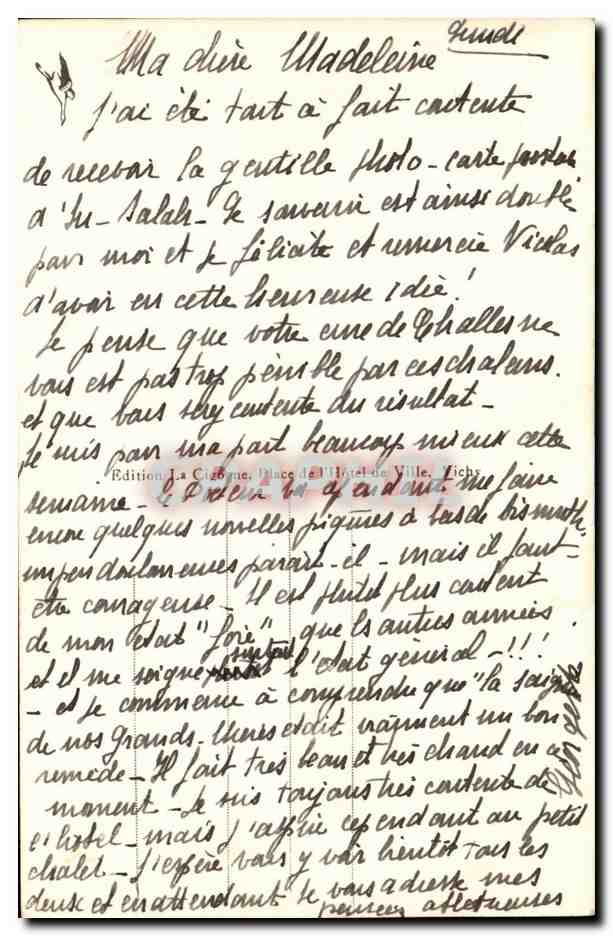 Lundi
Ma chère Madeleine
J'ai été tout à fait contente
de recevoir la gentille photo-carte postale
d'In-Salah - Le souvenir est ainsi doublé
pour moi et je félicite et remercie Nicolas
d'avoir eu cette heureuse idée!
Je pense que votre cure de Challes ne
vous est pas trop pénible par ces chaleurs.
et que vous serez contente du résultat -
Je suis pour ma part beaucoup mieux cette
Edition La Cigogne, Place de l'Hôtel de Ville, Vichy
semaine - Le Docteur va cependant me faire
encore quelques nouvelles piqûres à base de bismuth.
un peu douloureuses paraît-il - mais il faut
être courageuse - Il est plutôt plus content
de mon état "foie" que les autres années.
et il me soigne surtout l'état général - !!!
- et je commence à comprendre que "la saignée
de nos Grands-Mères était vraiment un bon
remède - Il fait très beau et très chaud en ce
moment - Je suis toujours très contente de
l'hôtel - mais j'aspire cependant au petit
chalet - J'espère vous y voir bientôt tous les
deux et en attendant je vous adresse mes
pensées affectueuses
Georgette